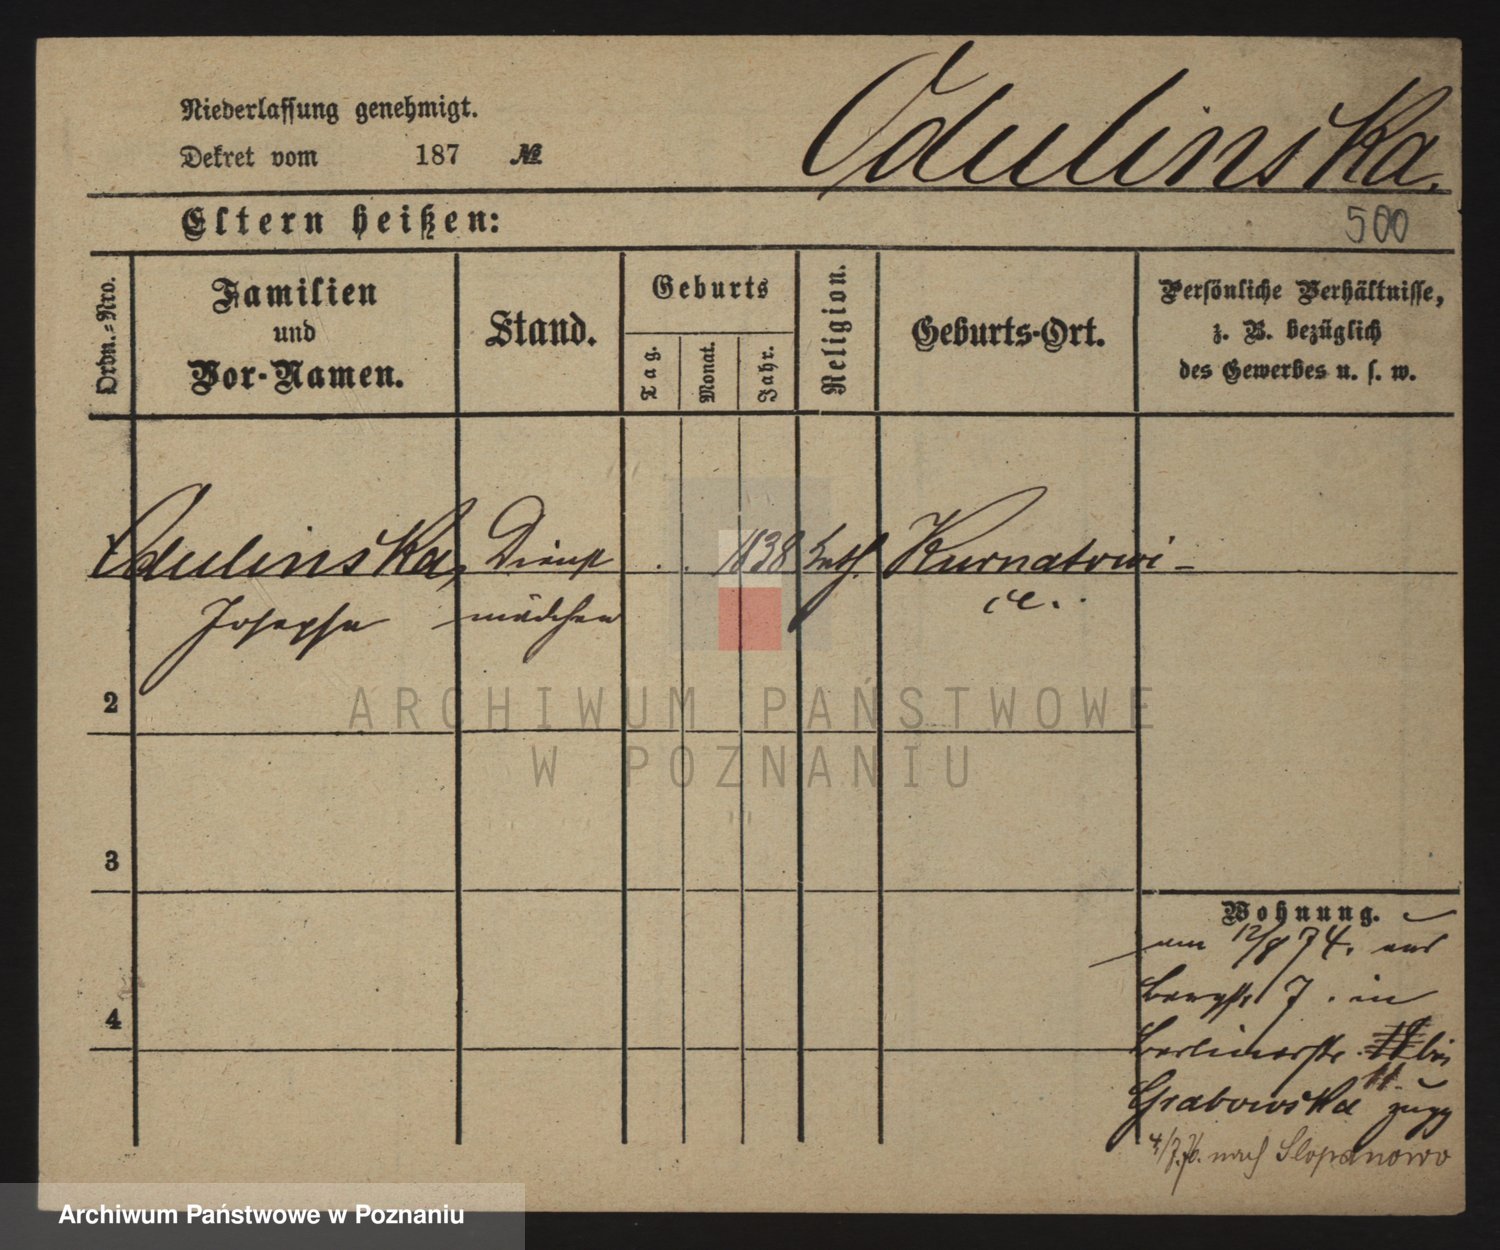 Niederlassung genehmigt.
Dekret vom 187 №
Odulinska.
Eltern heißen:
500
Ordn.-Nro.
Familien
und
Vor-Namen.
Stand.
Geburts
Tag.
Monat.
Jahr.
Religion.
Geburts-Ort.
Persönliche Verhältnisse,
z. B. bezüglich
des Gewerbes u. s. w.
Odulinska, Dienst . . 1838 kath. Kurnatowi-
Josepha mädchen ce.
2
3
4
Wohnung.
am 12/8 74. aus
Bergstr 7. in
Berlinerstr. bei
11.
Grabowska zugz
4/7.76. nach Slopanowo
ARCHIWUM PAŃSTWOWE
W POZNANIU
Archiwum Państwowe w Poznaniu